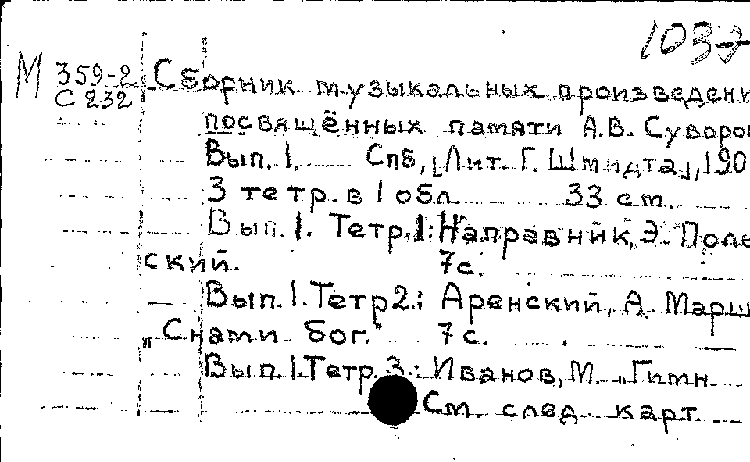 1037
М 359-2 Сборник музыкальных произведени
С 232
посвящённых памяти А.В. Суворо
Вып. 1. Спб, [Лит. Г. Шмидта], 190
3 тетр. в 1 обл. 33 см.
Вып. 1. Тетр. 1: Направник, Э. Поль
ский. 7с.
Вып. 1. Тетр 2.: Аренский, А. Марш
„С нами бог." 7с.
Вып. 1. Тетр. 3.: Иванов, М. „Гимн
См. след. карт